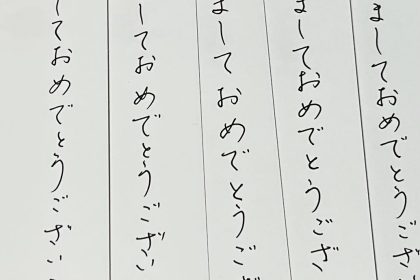 ましておめでとう
ましておめでとうござ
ましておめでとうござ
しておめでとうござい
しておめでとうござい